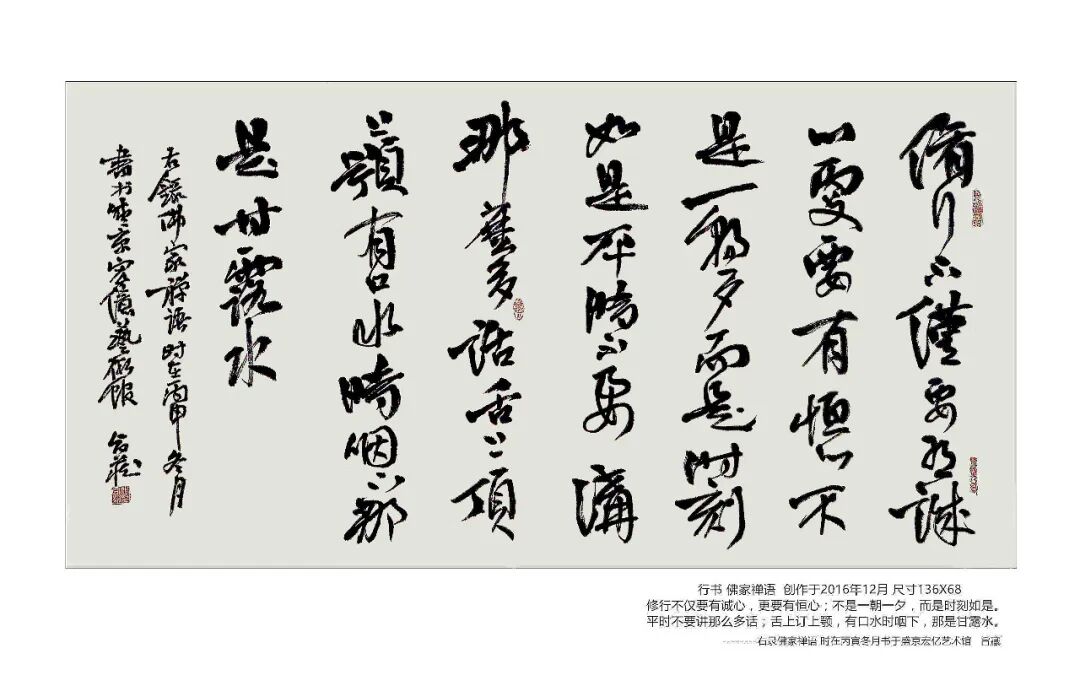 脩行不僅要有誠
心更要有恒心不
是一朝夕而是时刻
如是平時不要講
那麼多話舌上頂
上顎有口水時咽下那
是甘露水
右錄佛家禪語时在丙申冬月
書於盛京宏億藝術館
行书 佛家禅语 创作于2016年12月 尺寸136X68
修行不仅要有诚心，更要有恒心；不是一朝一夕，而是时刻如是。
平时不要讲那么多话；舌上订上颚，有口水时咽下，那是甘露水。
右录佛家禅语 时在丙寅冬月书于盛京宏亿艺术馆